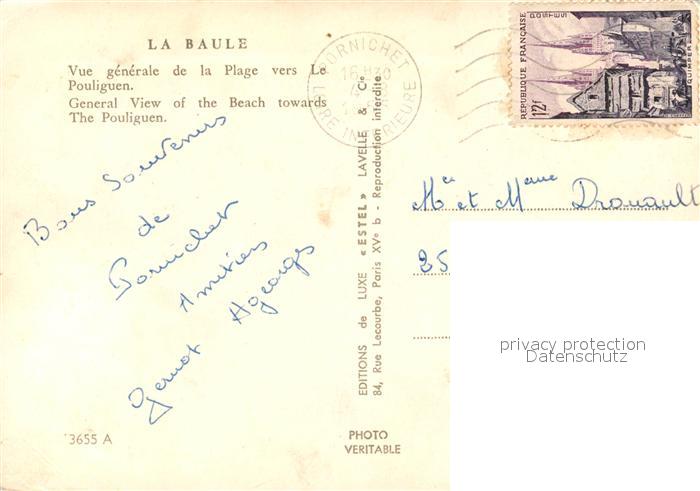 LA BAULE
Vue générale de la Plage vers Le
Pouliguen.
General View of the Beach towards
The Pouliguen.
Bons Souvenirs
de
Pornichet
Amitiés
3655 A
PORNICHET
16 H30
LOIRE INFERIEURE
EDITIONS de LUXE « ESTEL » LAVELLE & Cie
84, Rue Lecourbe, Paris XVe b - Reproduction interdite
PHOTO
VERITABLE
REPUBLIQUE FRANÇAISE
POSTES
12f
QUIMPER
et Mme Drouault
25
privacy protection
Datenschutz